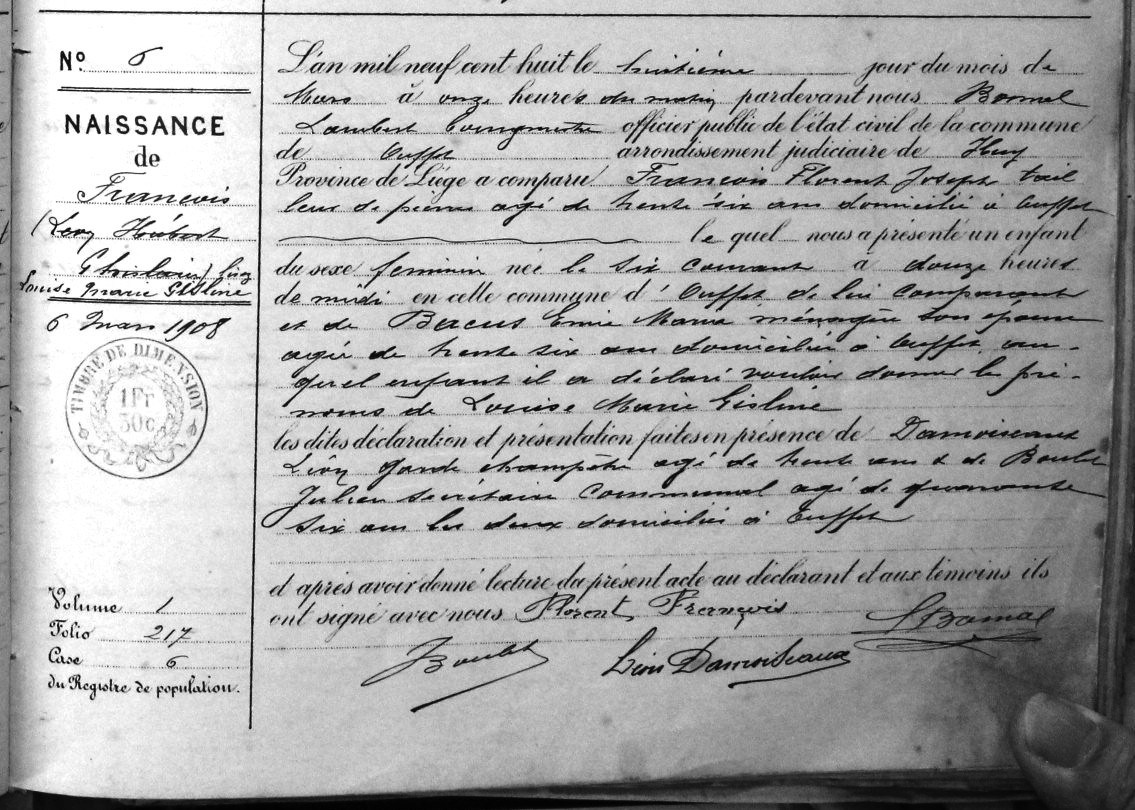 N° 6
NAISSANCE
de
François
(Léon Hubert
Ghislain) lisez
Louise Marie Gisline
6 Mars 1908
TIMBRE DE DIMENSION
1 Fr
30 c.
Volume 1
Folio 217
Case 6
du Registre de population.
L'an mil neuf cent huit le huitième jour du mois de
Mars à onze heures du matin pardevant nous Bomal
Lambert Bourgmestre officier public de l'état civil de la commune
de Ouffet arrondissement judiciaire de Huy
Province de Liège a comparu François Florent Joseph tail
leur de pierres agé de trente six ans domicilié à Ouffet
le quel nous a présenté un enfant
du sexe feminin née le six courant à douze heures
de midi en cette commune d'Ouffet de lui comparant
et de Bacus Marie ménagère son épouse
agée de trente six ans domiciliée à Ouffet, au-
quel enfant il a déclaré vouloir donner les pré-
noms de Louise Marie Gisline
les dites déclaration et présentation faites en présence de Damoiseaux
Léon garde champêtre agé de trente ans & de Boulet
Julien secrétaire communal agé de quarante
six ans les deux domiciliés à Ouffet
et après avoir donné lecture du présent acte au déclarant et aux témoins ils
ont signé avec nous Florent François
L Bomal
J Boulet Léon Damoiseaux